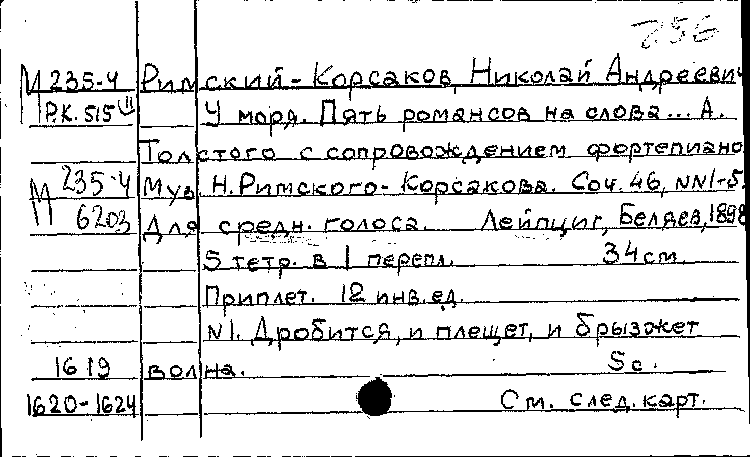 256
М 235-4 Римский-Корсаков, Николай Андреевич
Р.К. 515 II У моря. Пять романсов на слова... А.
Толстого с сопровождением фортепиано
М 235-4 Муз. Н. Римского-Корсакова. Соч. 46, NN1-5.
6203 Для средн. голоса. Лейпциг, Беляев, 1898
5 тетр. в 1 перепл. 34 см.
Приплет. 12 инв. ед.
N1. Дробится, и плещет, и брызжет
1619 волна. 5 с.
1620-1624 См. след. карт.